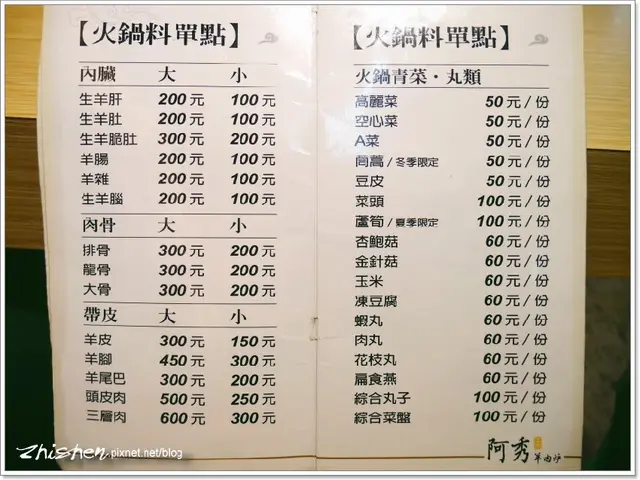 【火鍋料單點】
內臟 大 小
生羊肝 200元 100元
生羊肚 200元 100元
生羊脆肚 300元 200元
羊腸 200元 100元
羊雜 200元 100元
生羊腦 200元 100元
肉骨 大 小
排骨 300元 200元
龍骨 300元 200元
大骨 300元 200元
帶皮 大 小
羊皮 300元 150元
羊腳 450元 300元
羊尾巴 300元 200元
頭皮肉 500元 250元
三層肉 600元 300元
【火鍋料單點】
火鍋青菜・丸類
高麗菜 50元/份
空心菜 50元/份
A菜 50元/份
茼萵/冬季限定 50元/份
豆皮 50元/份
菜頭 100元/份
蘆筍/夏季限定 100元/份
杏鮑菇 60元/份
金針菇 60元/份
玉米 60元/份
凍豆腐 60元/份
蝦丸 60元/份
肉丸 60元/份
花枝丸 60元/份
扁食燕 60元/份
綜合丸子 100元/份
綜合菜盤 100元/份
阿秀 羊肉爐
zhishen.pixnet.net/blog